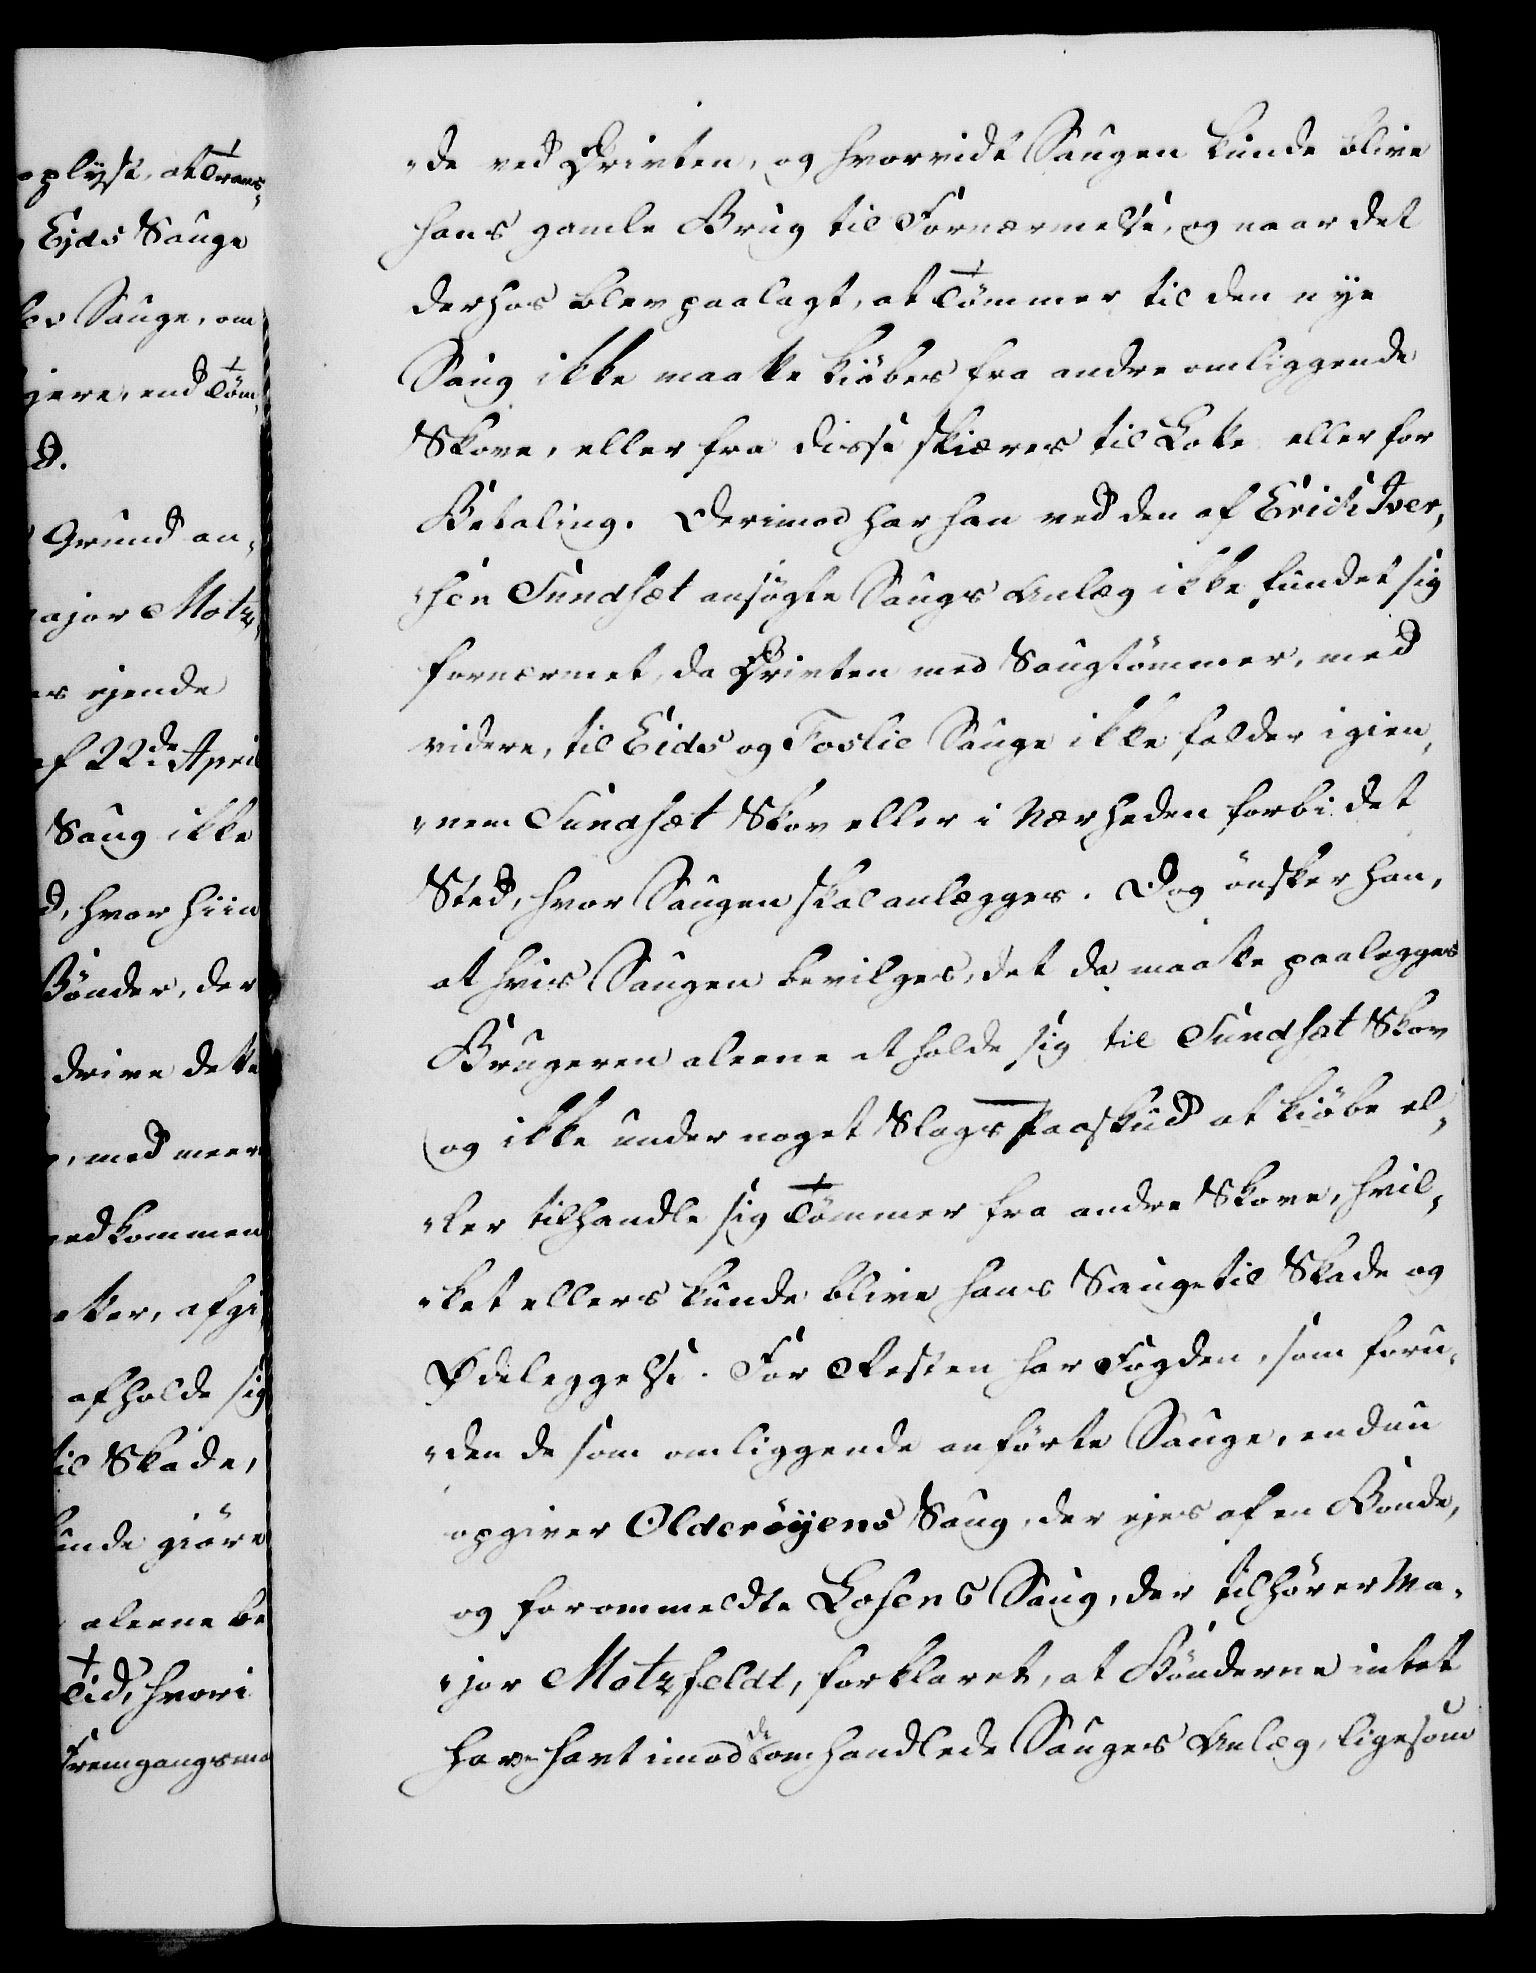 oplyst, at Trans-
Ejds Sauge
lev Sauge, om
gere, end Töm-
d.
Grund an-
ajor Motz-
er ejende
af 22de April
Saug ikke
d, hvor hiin
Bönder, der
drive dette
, med meere
vedkommen
etter, afgi-
afholde sig
til Skade,
kunde giöre
aleene be
Tid, hvori
Fremgangsma
-de ved Driften, og hvorvidt Saugen kunde blive
hans gamle Brug til Fornærmelse, og naar det
derhos blev paalagt, at Tömmer til den nye
Saug ikke maatte kiöbes fra andre omliggende
Skove, eller fra disse skiæres til Lots eller for
Betaling. Derimod har han ved den af Erich Iver-
-sen Sundsæt ansögte Saugs Anlæg ikke fundet sig
fornærmet, da Driften med Saugtömmer, med
videre, til Eids og Foslie Sauge ikke falder igien-
-nem Sundsæt Skov eller i Nærheden forbi det
Sted, hvor Saugen skal anlægges. Dog önsker han,
at hvis Saugen bevilges, det da maatte paalegges
Brugeren aleene at holde sig til Sundsæt Skov
og ikke under noget Slags Paaskud at kiöbe el-
-ler tilhandle sig Tömmer fra andre Skove, hvil-
-ket ellers kunde blive hans Sauge til Skade og
Ødeleggelse. For Resten har Fogden, som foru-
-den de som omliggende anförte Sauge, endnu
opgiver Olderöyens Saug, der ejes af en Bonde,
og forommeldte Losens Saug, der tilhörer Ma-
-jor Motzfeldt, forklaret, at Bönderne intet
have havt imod de omhandlede Sauges Anlæg, ligesom